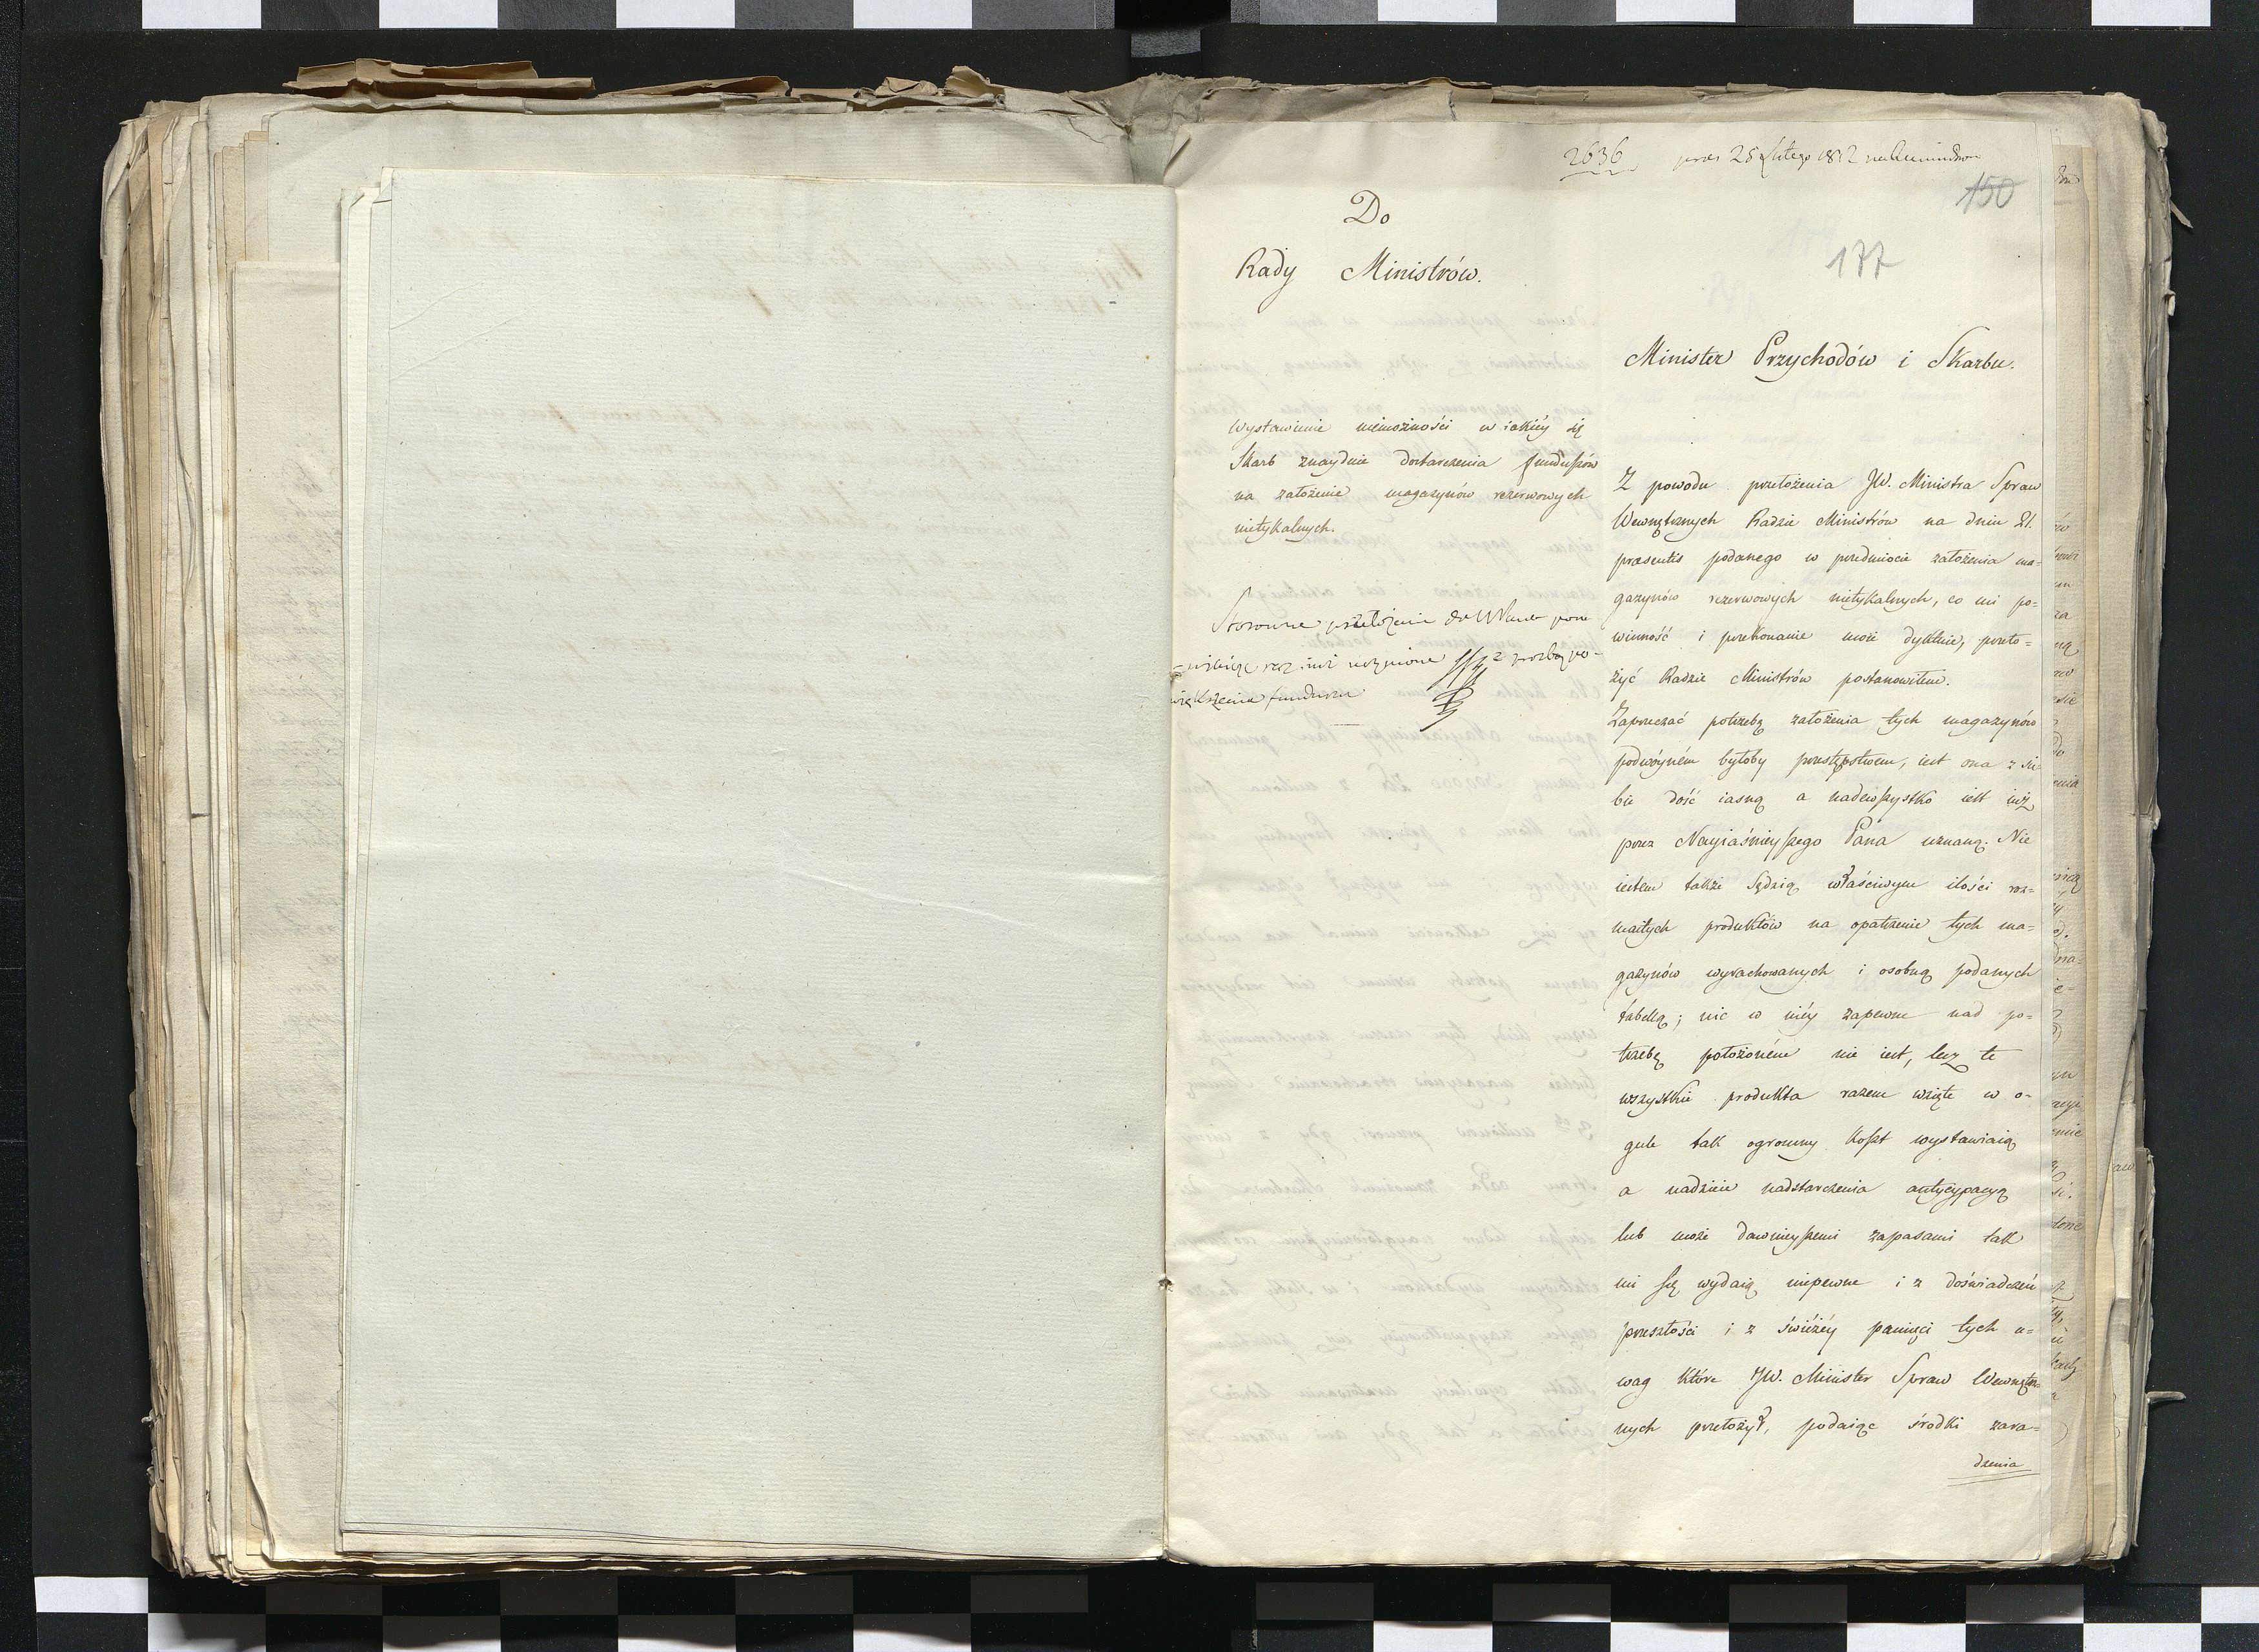 2636 pres 25 Lutego 1812
150
177
Do
Rady Ministrów.
Minister Przychodów i Skarbu.
Wystawienie niemożności w iakiéy się
Skarb znayduie dostarczenia funduszów
na założenie magazynów rezerwowych
nietykalnych.
Stosowne przełożenie do
raz iuż uczynione z prozbą po-
większenia funduszu
Z powodu przełożenia JW. Ministra Spraw
Wewnętrznych Radzie Ministrów na dniu 21.
praesentis podanego w przedmiocie założenia ma-
gazynów rezerwowych nietykalnych, co mi po-
winność i przekonanie moie dyktuie, przeło-
żyć Radzie Ministrów postanowiłem.
Zaprzeczać potrzebę założenia tych magazynów
podwóyném byłoby przestępstwem, iest ona z sie-
bie dość iasną a nadewszystko iest iuż
przez Nayiaśnieyszego Pana uznaną. Nie
iestem także Sędzią właściwym ilości roz-
maitych produktów na opatrzenie tych ma-
gazynów wyrachowanych i osobną podanych
tabellą; nic w niéy zapewne nad po-
trzebę położoném nie iest, lecz te
wszystkie produkta razem wzięte w o-
gule tak ogromny koszt wystawiaią
a nadzieie nadstarczenia antycypacyą
lub może dawnieyszemi zapasami tak
mi się wydaią niepewne i z doświadczeń
przeszłości i z świeżéy pamięci tych u-
wag które JW. Minister Spraw Wewnętrz-
nych przełożył, podaiąc środki zara-
dzenia